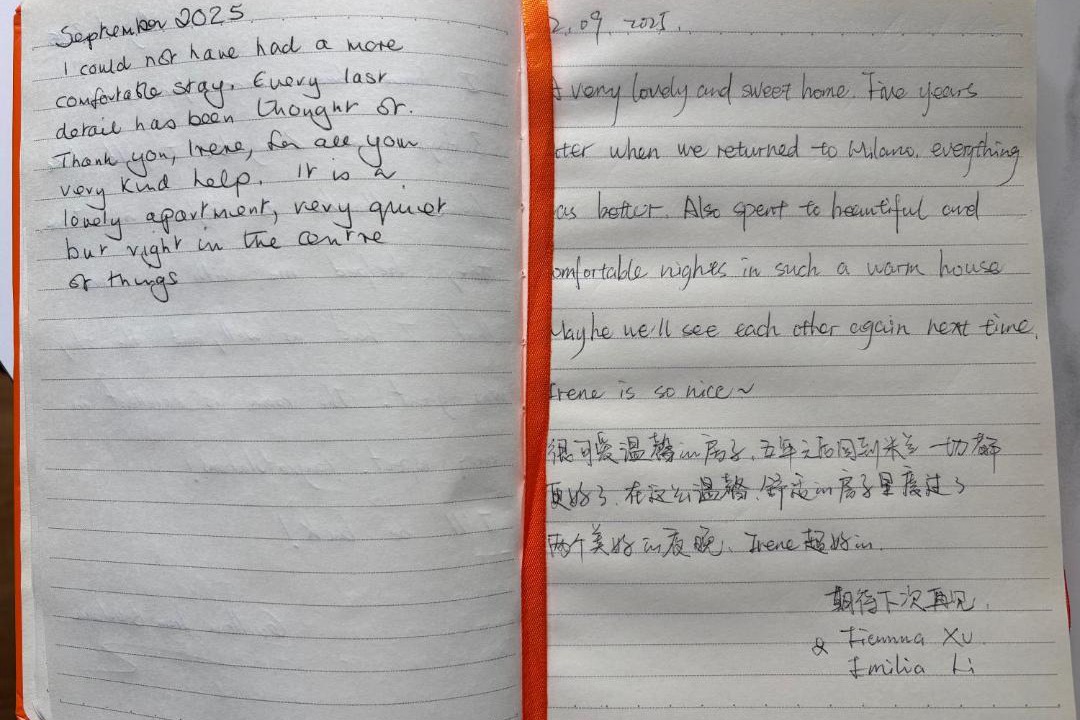 September 2025
I could not have had a more
comfortable stay. Every last
detail has been thought of.
Thank you, Irene, for all your
very kind help. It is a
lovely apartment, very quiet
but right in the centre
of things
2.09.2025.
A very lovely and sweet home. Five years
ter when we returned to Milano. everything
as better. Also spent to beautiful and
omfortable nights in such a warm house
Maybe we'll see each other again next time.
Irene is so nice~
很可爱温馨的房子,五年之后回到米兰 一切都
更好了.在这么温馨、舒适的房子里度过了
两个美好的夜晚、Irene超好的.
期待下次再见.
& Xu.
Emilia Li